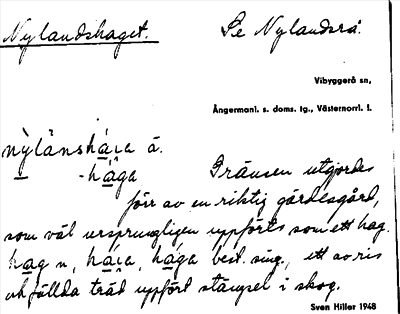 Nylandshaget. Se Nylandsrå.
Vibyggerå sn,
Ångermanl. s. doms. tg., Västernorrl. l.
nỳlånshá̱i̯a å.
-há̱ga Gränsen utgjordes
förr av en riktig gärdesgård,
som väl ursprungligen uppförts som ett hag.
ha̱g n, há̱i̯a, há̱ga best. sing., ett av ris
och fällda träd uppfört stängsel i skog.
Sven Hiller 1948